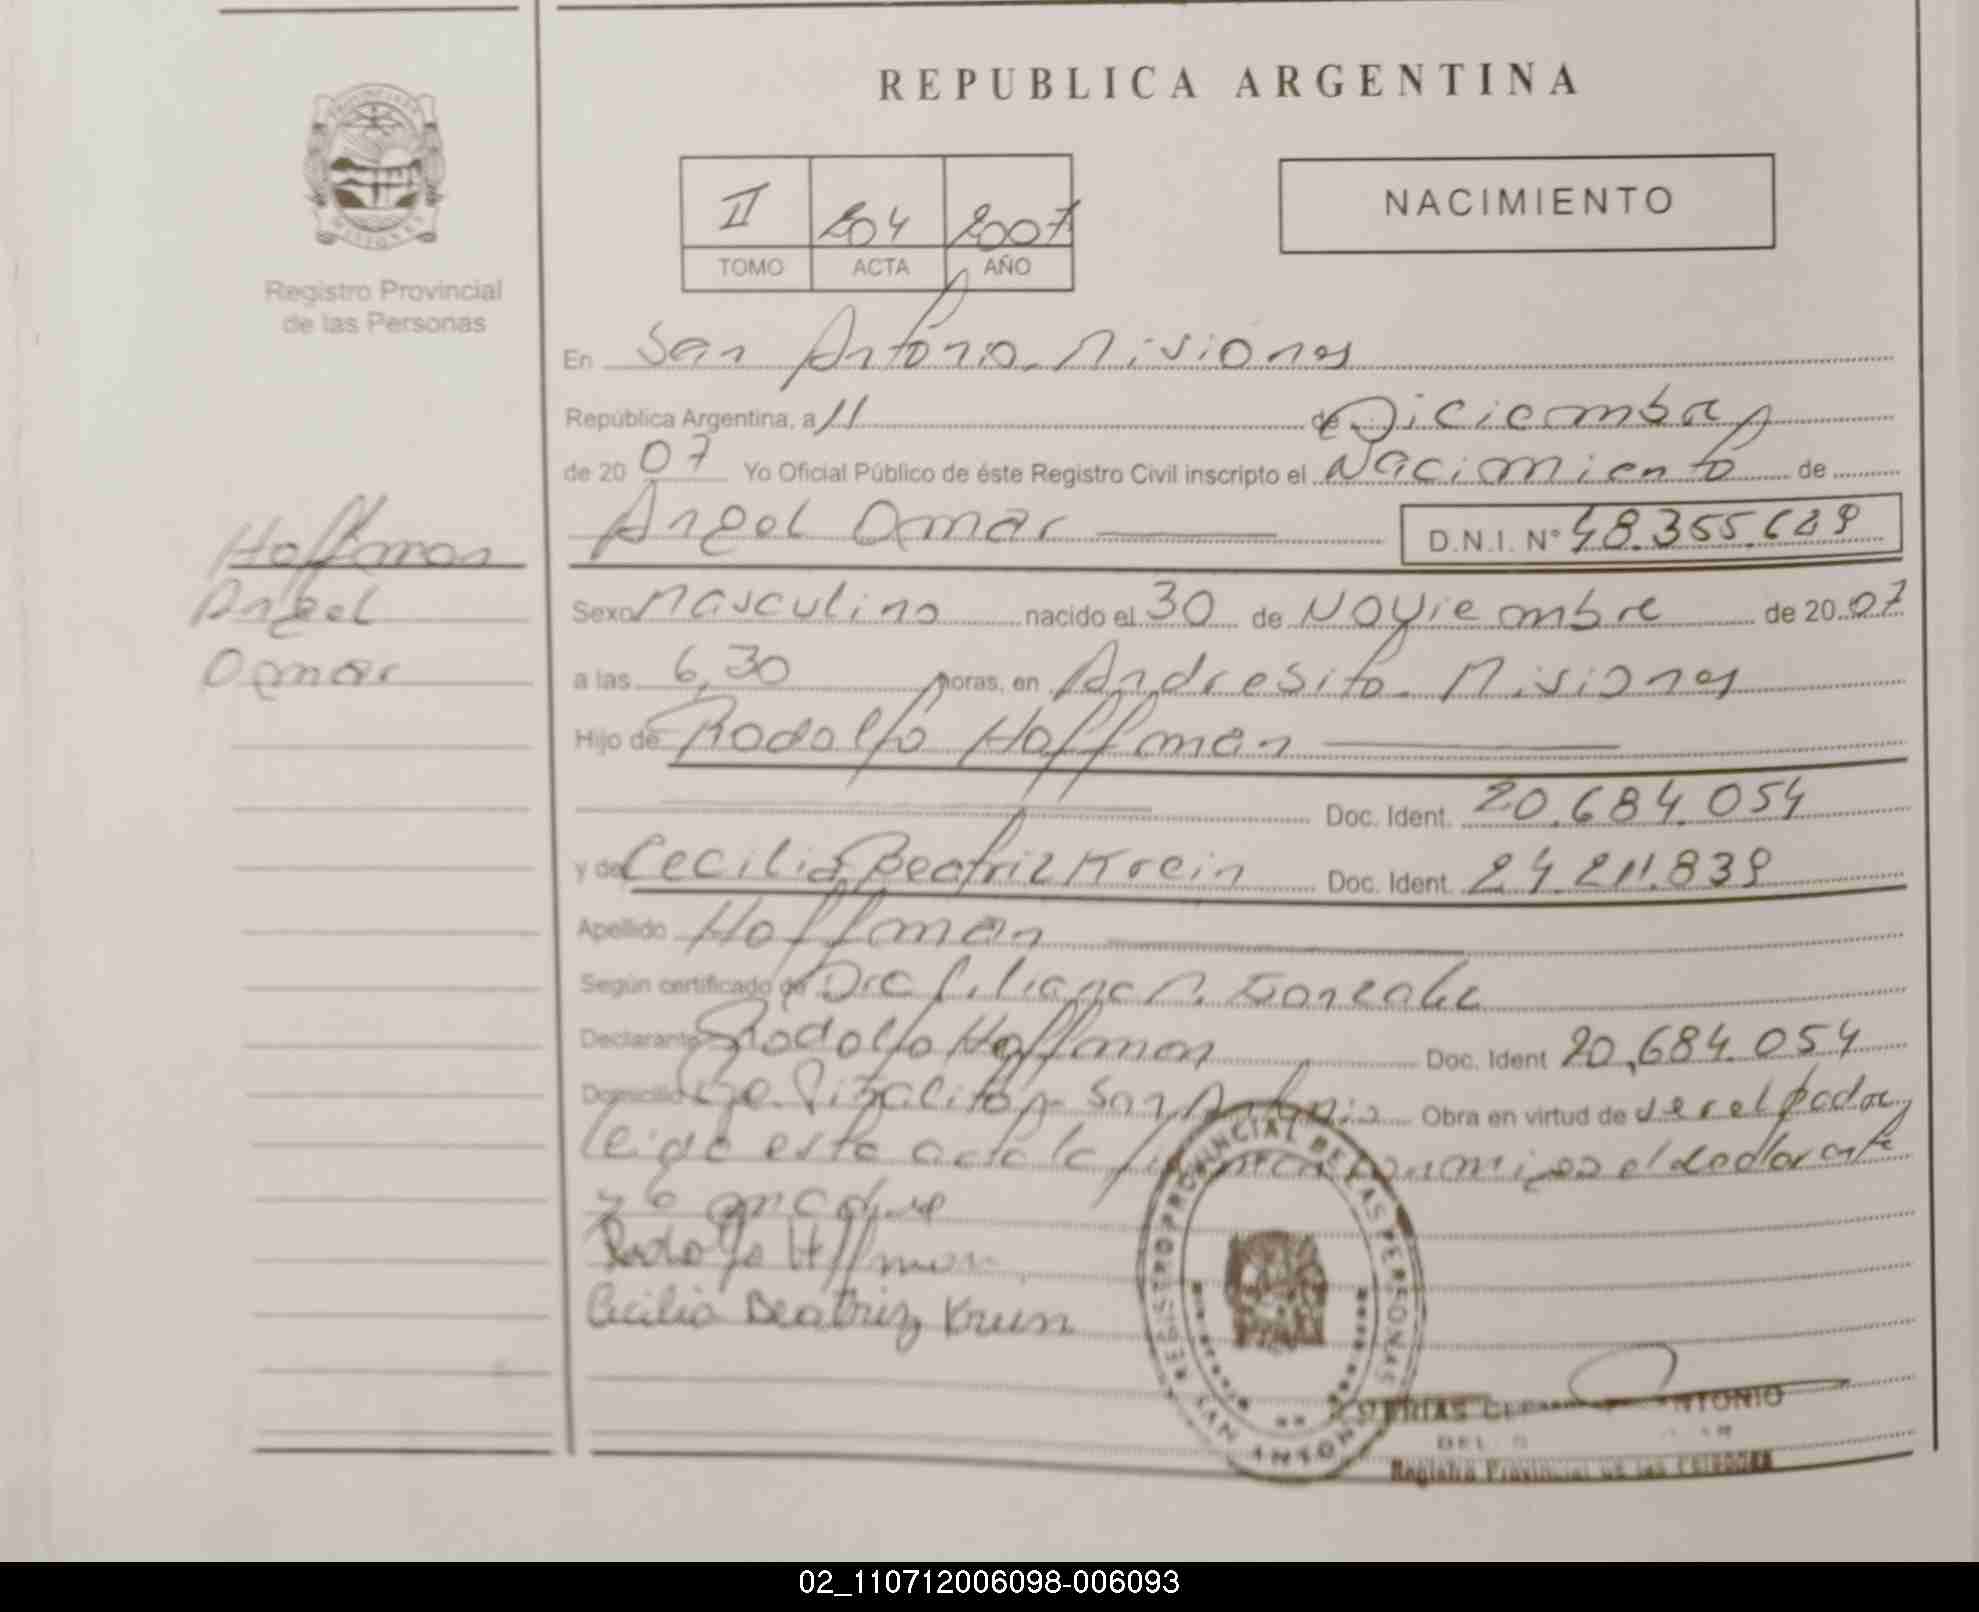 REPUBLICA ARGENTINA
II 204 2007
TOMO ACTA AÑO
NACIMIENTO
Registro Provincial
de las Personas
En San Antonio. Misiones
República Argentina, a 11 de Diciembre
de 20 07 Yo Oficial Público de éste Registro Civil inscripto el Nacimiento de
Angel Omar
D.N.I. N° 48.355.689
Hoffman
Angel
Omar
Sexo Masculino nacido el 30 de Noviembre de 20 07
a las 6,30 horas, en Andresito. Misiones
Hijo de Rodolfo Hoffman
Doc. Ident. 20.684.054
y de Cecilia Beatriz Krein Doc. Ident. 24.211.839
Apellido Hoffman
Según certificado de Dra Liliana
Declarante Rodolfo Hoffman Doc. Ident 20,684.054
Domicilio San Antonio Obra en virtud de ser el padre
leida esta acta la firman conmigo el declarante
y la madre
Rodolfo Hoffman
Cecilia Beatriz Krein
REGISTRO PROVINCIAL DE LAS PERSONAS
SAN ANTONIO
Registro Provincial de las Personas
02_110712006098-006093